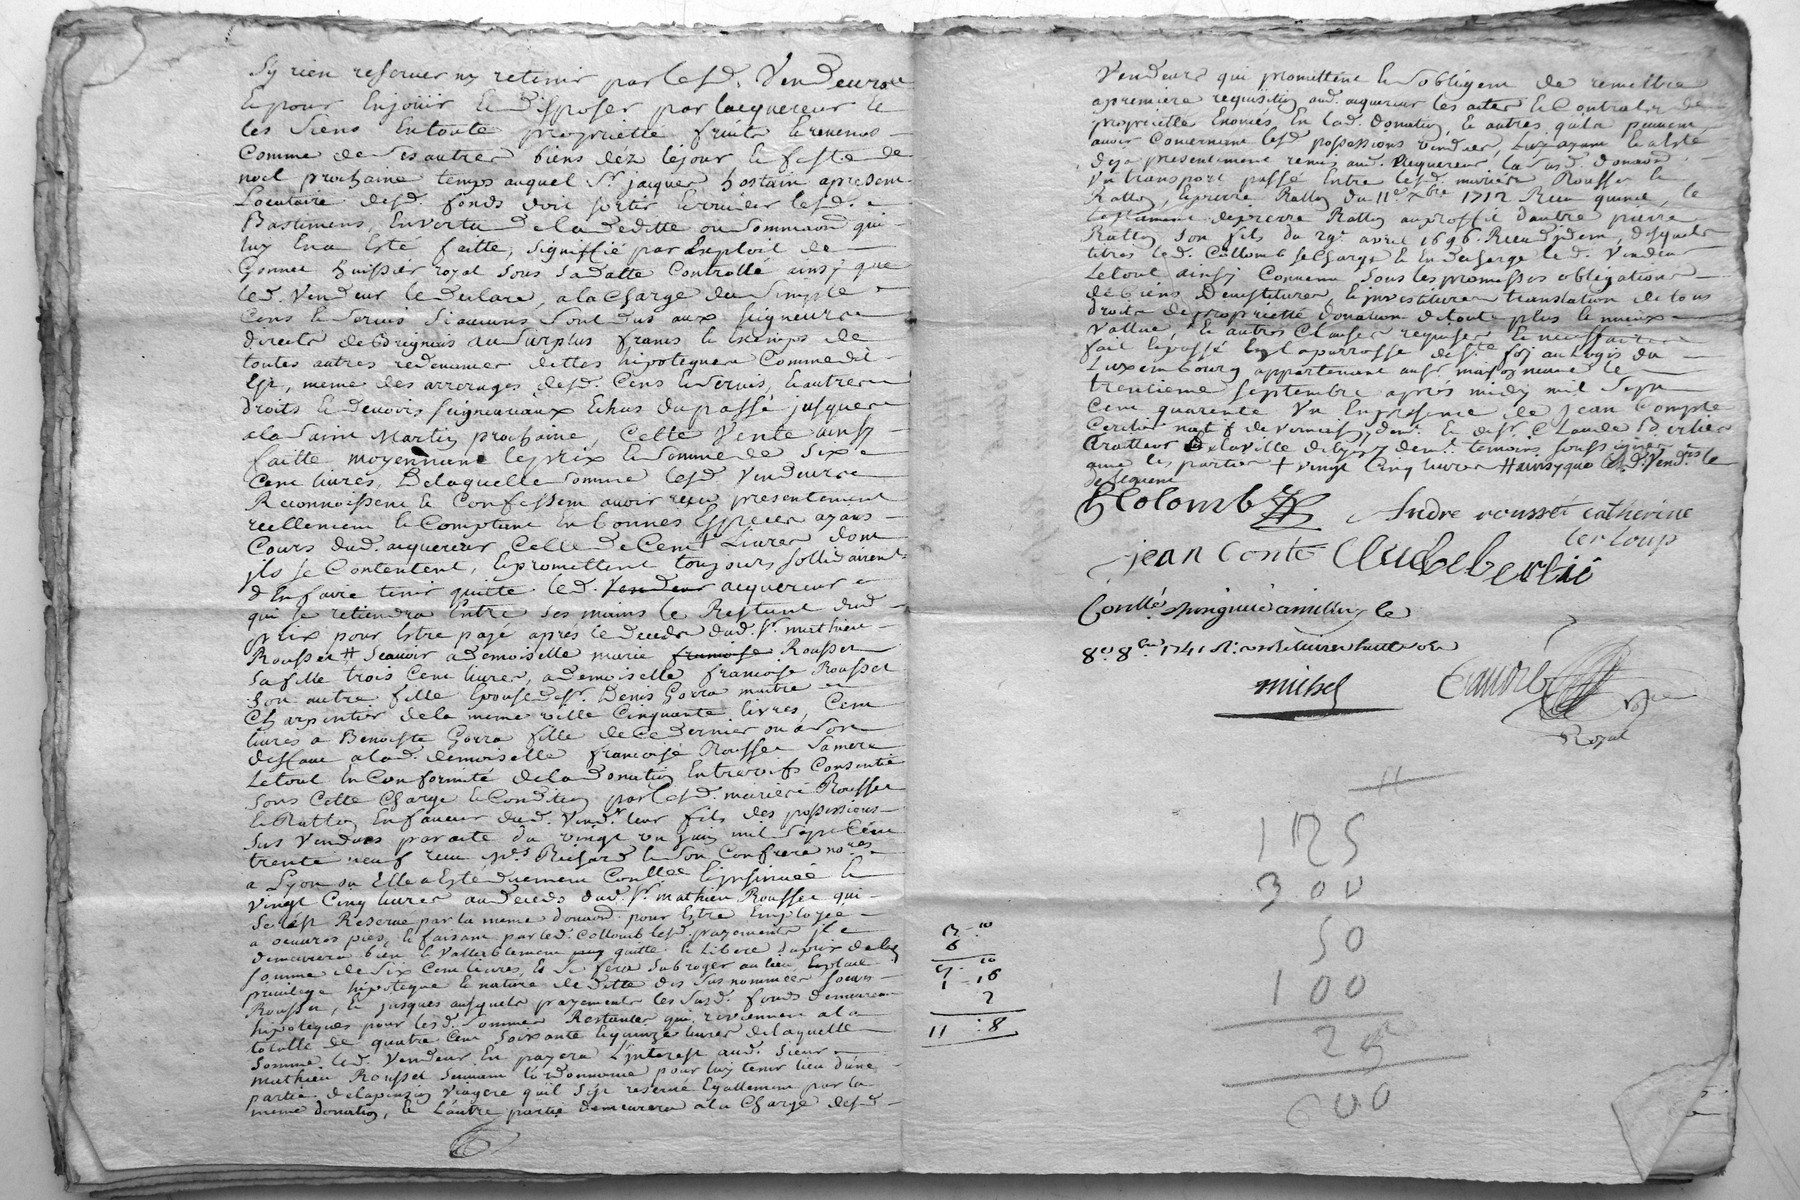 Sy rien reserver ny retenir par lesd. Vendeurs
Et pour En joüir Et Disposer par lacquereur Et
les siens En toute proprietté fruits Et revenus
Comme de ses autres biens déz le jour Et feste de
noel prochaine temps auquel Sr. jacques hostain apresent
Locataire desd. fonds doit sortir Et vuider lesd.
Bastimens, En vertu de la deditte ou Sommaon qui
luy En a Esté faitte, signiffié par Exploit de
huissier royal sous sa datte Controllé ainsy que
led. Vendeur le declare, a la Charge du simple
Cens Et servis si aucuns sont dus aux seigneurs
directs desoreignens au surplus francs Et Exempts de
toutes autres redevances dettes hipoteques Comme dit
Est, meme des arrerages desd. Cens Et servis, Et autres
droits Et devoirs seigneuriaux Echus du passé jusques
a la saint Martin prochaine, Cette Vente ainsy
faitte moyennant le prix Et somme de six
Cent livres, De laquelle somme lesd Vendeurs
Reconnoissent Et Confessent avoir reçu presentement
reellement Et Comptant En bonnes Especes ayans
Cours dud. acquereur Celle de Cent + Livres dont
jls se Contentent, Et promettent toujours sollidairent
d'En faire tenir quitte led. Vendeur acquereur
qui se retiendra Entre ses mains le Restant dud
prix pour Estre payé aprés le deceds dud. Sr. mathieu
Rousset # Scavoir a demoiselle marie francoise Rousset
sa fille trois Cent livres, a demoiselle francoise Rousset
son autre fille Epouse de sr. Denis Gorra maitre
Charpentier de la meme ville Cinquante livres, Cent
livres a Benoiste Gorra fille de Ce dernier ou a son
deffaut a lad. demoiselle francoise Rousset sa mere
Le tout En Conformité de la Donation Entrevifs Consentie
sous Cette Charge Et Condition par lesd. mariés Rousset
Et Ratton En faveur dud. Vendr leur fils des possessions
sus Vendues par acte du vingt un juin mil sept Cent
trente neuf reçu Mes Richard Et son Confrere nores
a Lyon ou Elle a Esté duement Conllée Et jnsinuée Et
vingt Cinq livres au deceds dud. Sr. mathieu Rousset qui
s'est Reservé par la meme donaon pour Estre Employée
a oeuvres pies, Et faisant par led. Collomb lesd. payements jl
demeurera bien Et Vallablement quitte Et liberé du prix de lad
somme de six Cent livres, Et se fera subroger au lieu Et place
privilege hipoteque Et nature de dette des sus nommées soeurs
Rousset, Et jusques ausquels payements les susd. fonds demeureront
hipoteques pour lesd. sommes Restantes qui reviennent a la
totalle de quatre Cent soixante Et quinze livres de laquelle
somme led. Vendeur En payera L'interest aud. sieur
Mathieu Rousset suivant l'ordonnance pour luy tenir lieu d'une
partie de la pension Viagere qu'il s'est reservé Egallement par la
meme donation, Et L'autre partie demeurera a la Charge desd
Vendeurs qui promettent Et s'obligent de remettre
a premiere requisition aud. acquereur les actes Et Contrats de
proprietté Enoncés En lad. Donation, Et autres qu'ils peuvent
avoir Concernant lesd possessions vendues, Luy ayant Et a Esté
deja presentement remis aud. acquereur la susd. donaon
Un transport passé Entre lesd. mariés Rousset Et
Ratton, Et pierre Ratton du 11e xbre 1712 Reçu guinet, le
testament de pierre Ratton au proffit d'autre pierre
Ratton son fils du 29e avril 1696. Reçu didem, desquels
titres led. Collomb se Charge Et En decharge led. Vendeur
Le tout ainsy Convenu sous les promesses obligations
de biens Devestitures, Et jnvestitures translation de tous
droits de proprietté donation de toute plus Et mieux
Vallue Et autres Clauses requises Et necessaires
fait Et passé En la parroisse de ste foy au Logis du
Luxembourg appartenant au sr. maisonneuve le
trentieme septembre aprés midy mil sept
Cent quarente Un En presence de Jean Compte
natf de et de sr. Claude Bertier
traitteur de la ville de Lyon y demt. temoins soussignés
avec les parties + vingt Cinq livres # ainsy que led. Vendrs le
Colomb
Andre rousset catherine
lerloup
jean Conte Claude bertié
Conllé
8e 8bre 1741
michel
Royal
175
300
50
100
25
600
3 10
6
9 10
1 16
2
11 : 8